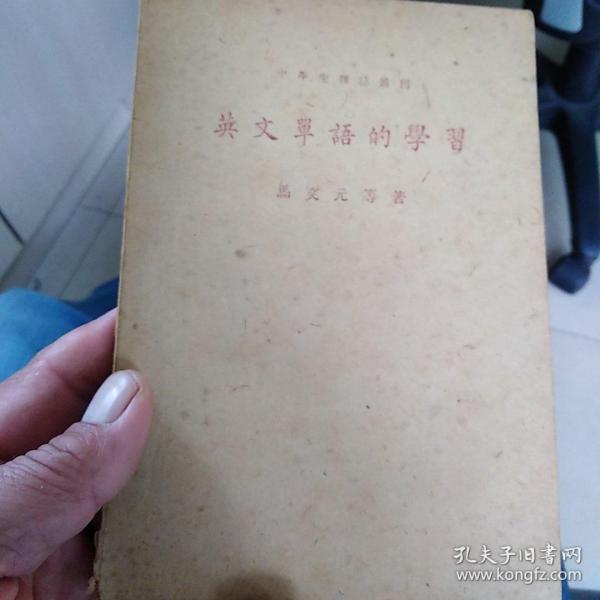 中學生雜誌叢刊
英文單語的學習
馬文元等著
孔夫子旧书网
www.kongfz.com